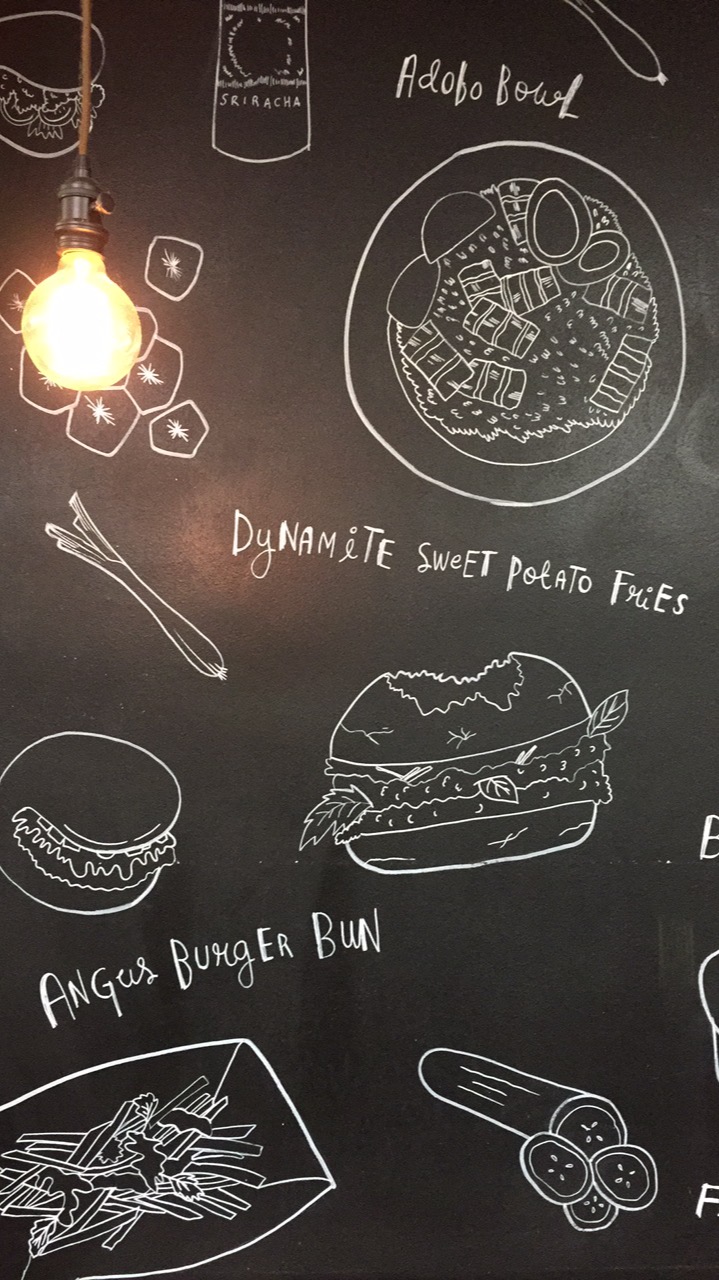 SRIRACHA
Adobo Bowl
DyNAMiTE SWeET PotATO FRiES
ANGus BURgER BUN
B
F